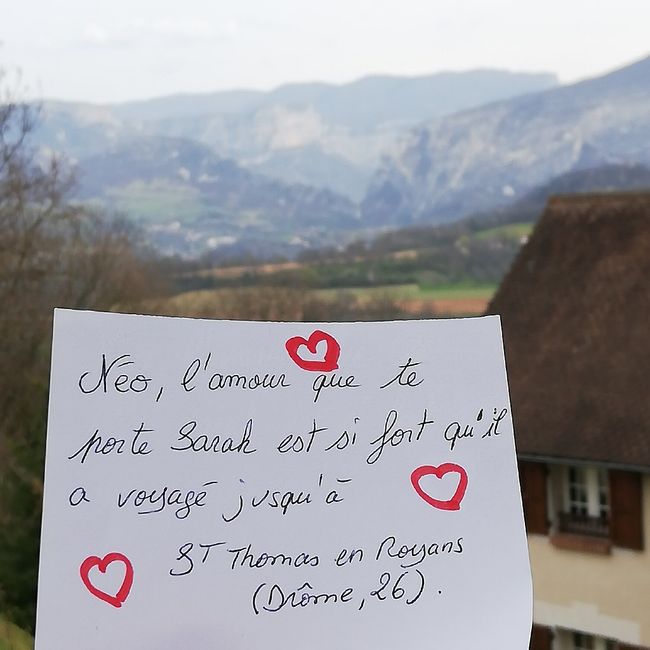 Néo, l'amour que te
porte Sarah est si fort qu'il
a voyagé jusqu'à
ST Thomas en Royans
(Drôme, 26).